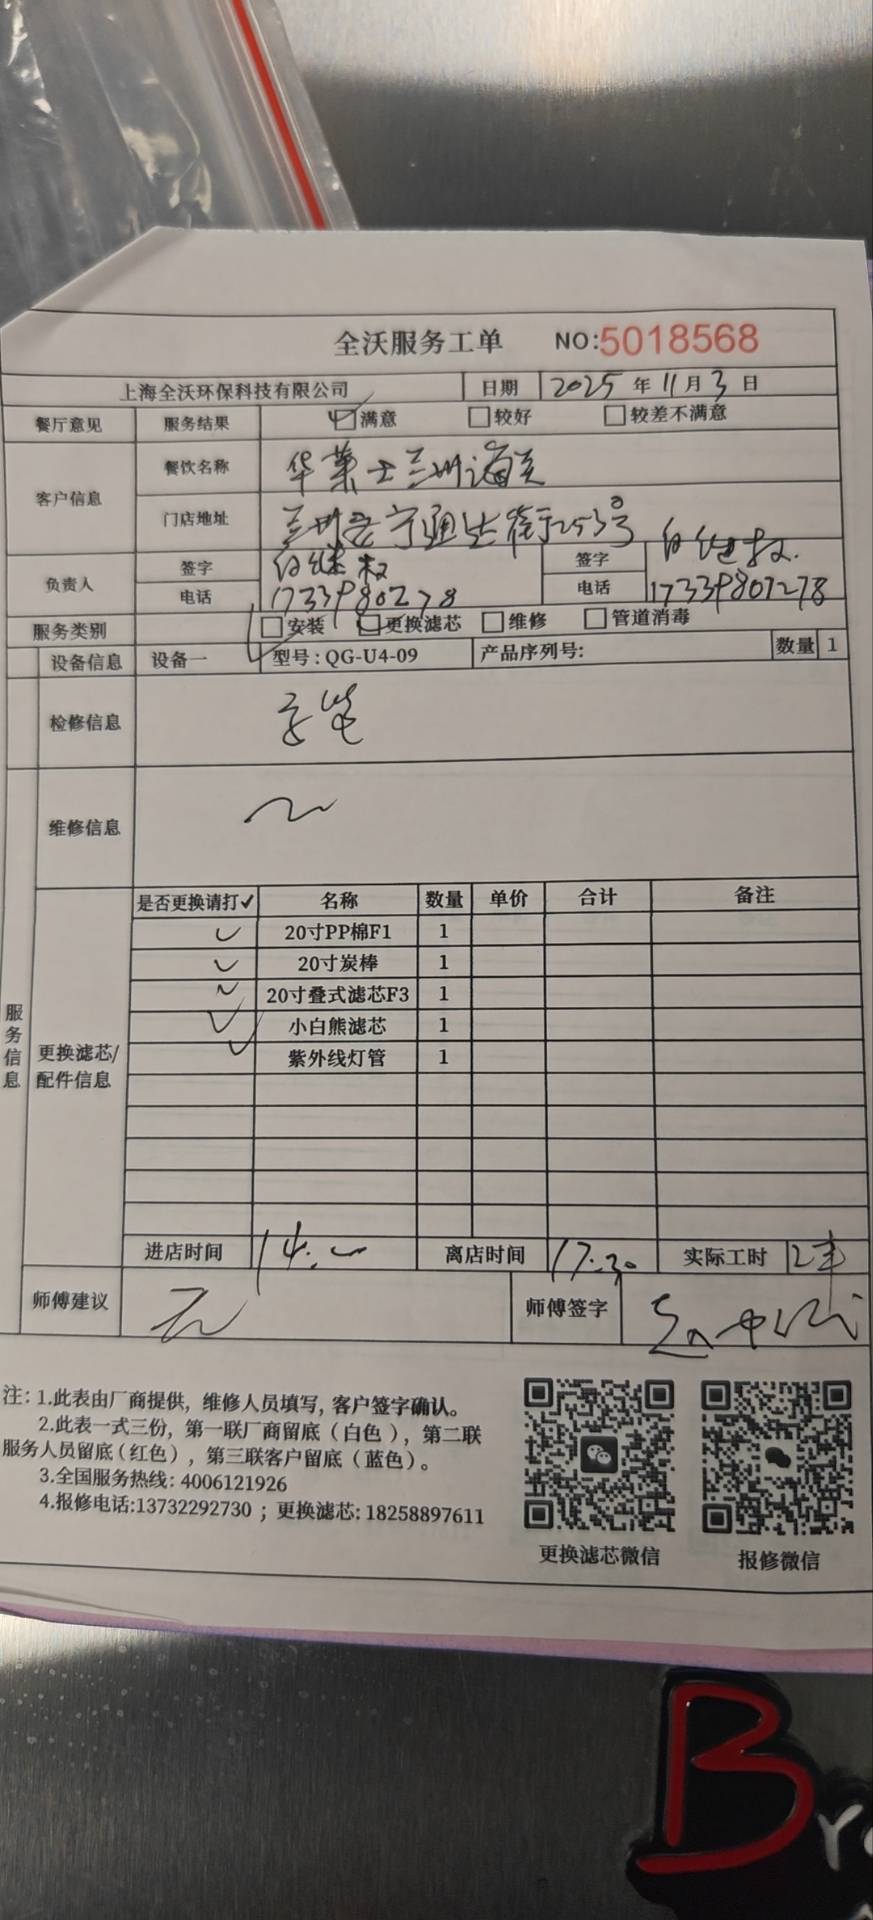 全沃服务工单 NO:5018568
上海全沃环保科技有限公司 日期 2025年11月3日
餐厅意见 服务结果 ☑满意 □较好 □较差不满意
客户信息 餐饮名称 华莱士兰州海关
门店地址 兰州 宁通达街于253号
负责人 签字 白继权 签字 白继权
电话 17339807278 电话 17339807278
服务类别 □安装 □更换滤芯 □维修 □管道消毒
设备信息 设备一 型号:QG-U4-09 产品序列号: 数量 1
检修信息
维修信息
服务信息
更换滤芯/配件信息
是否更换请打✓ 名称 数量 单价 合计 备注
✓ 20寸PP棉F1 1
✓ 20寸炭棒 1
✓ 20寸叠式滤芯F3 1
✓ 小白熊滤芯 1
✓ 紫外线灯管 1
进店时间 14: 离店时间 17:30 实际工时
师傅建议 无 师傅签字
注: 1.此表由厂商提供，维修人员填写, 客户签字确认。
2.此表一式三份，第一联厂商留底（白色 ），第二联
服务人员留底（红色），第三联客户留底（蓝色）。
3.全国服务热线: 4006121926
4.报修电话:13732292730 ；更换滤芯: 18258897611
更换滤芯微信 报修微信
B